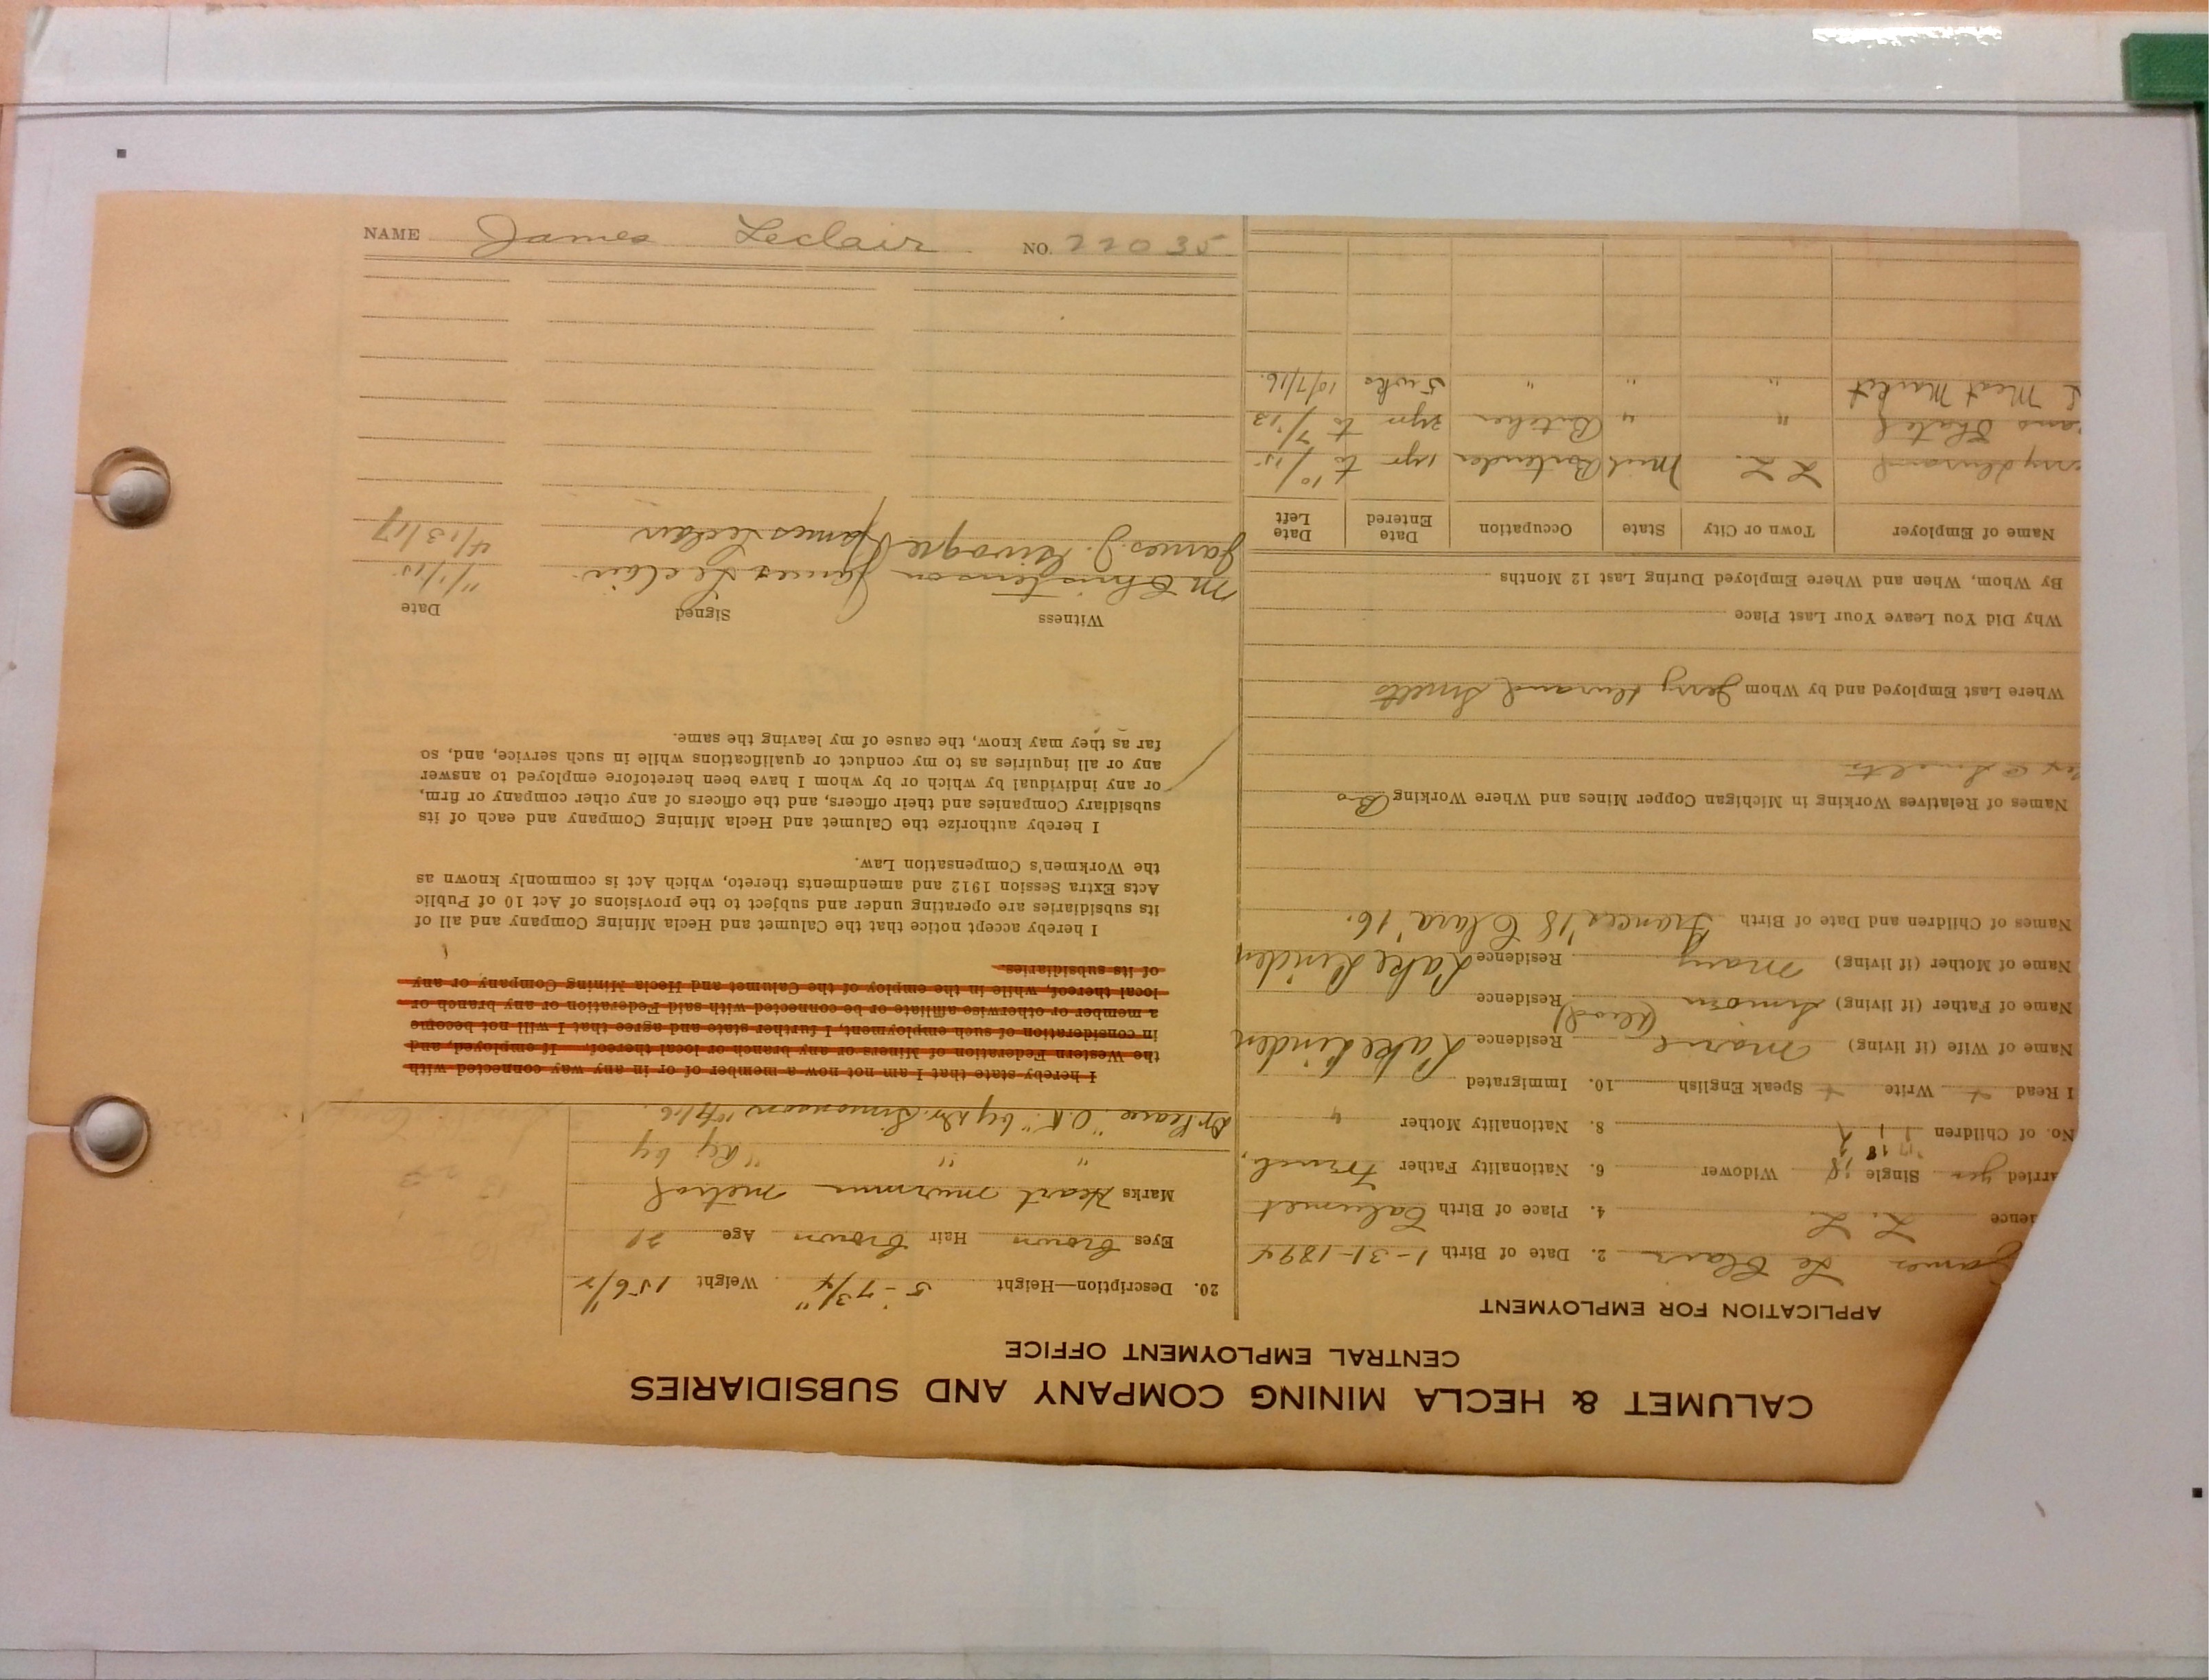 NAME James Leclair NO. 22035
CALUMET & HECLA MINING COMPANY AND SUBSIDIARIES
CENTRAL EMPLOYMENT OFFICE
APPLICATION FOR EMPLOYMENT
James Le Clair 2. Date of Birth 1-31-1894
dence L. L. 4. Place of Birth Calumet
arried yes Single Widower 6. Nationality Father French
No. of Children 8. Nationality Mother "
I Read + Write + Speak English 10. Immigrated
Name of Wife (if living) Marie Residence Lake Linden
Name of Father (if living) Simon (Dead) Residence
Name of Mother (if living) Mary Residence Lake Linden
Names of Children and Date of Birth Frances '18 Clara '16.
Names of Relatives Working in Michigan Copper Mines and Where Working Bro
Smelts
Where Last Employed and by Whom Jerry Durand Smelts
Why Did You Leave Your Last Place
By Whom, When and Where Employed During Last 12 Months
Name of Employer Town or City State Occupation Date Entered Date Left
rry Durand L. L. Mich Bartender 1 yr to 10/15
" " Butcher 2 yr to 7/13
L Meat Market " " " 5 wks 10/7/16.
20. Description—Height 5-7 3/4" Weight 156 1/2
Eyes Brown Hair Brown Age 21
Marks Heart murmur metral
" " " Rej by
Dr Pearce "O.K." by Dr. Simonson
I hereby state that I am not now a member of or in any way connected with
the Western Federation of Miners or any branch or local thereof. If employed, and
in consideration of such employment, I further state and agree that I will not become
a member or otherwise affiliate or be connected with said Federation or any branch or
local thereof, while in the employ of the Calumet and Hecla Mining Company or any
of its subsidiaries
I hereby accept notice that the Calumet and Hecla Mining Company and all of
its subsidiaries are operating under and subject to the provisions of Act 10 of Public
Acts Extra Session 1912 and amendments thereto, which Act is commonly known as
the Workmen's Compensation Law.
I hereby authorize the Calumet and Hecla Mining Company and each of its
subsidiary Companies and their officers, and the officers of any other company or firm,
or any individual by which or by whom I have been heretofore employed to answer
any or all inquiries as to my conduct or qualifications while in such service, and, so
far as they may know, the cause of my leaving the same.
Witness Signed Date
M Christenson James Le clair 11/1/15
James J. James Leclair 4/13/17